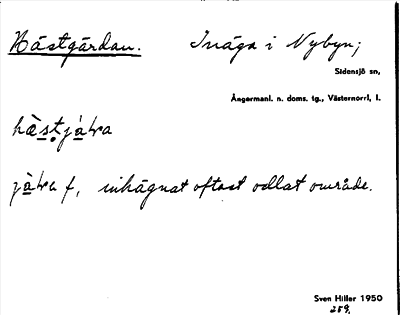 Hästgårdan. Inäga i Nybyn;
Sidensjö sn,
Ångermanl. n. doms. tg., Västernorrl, l.
inhägnat oftast odlat område.
Sven Hiller 1950
259,